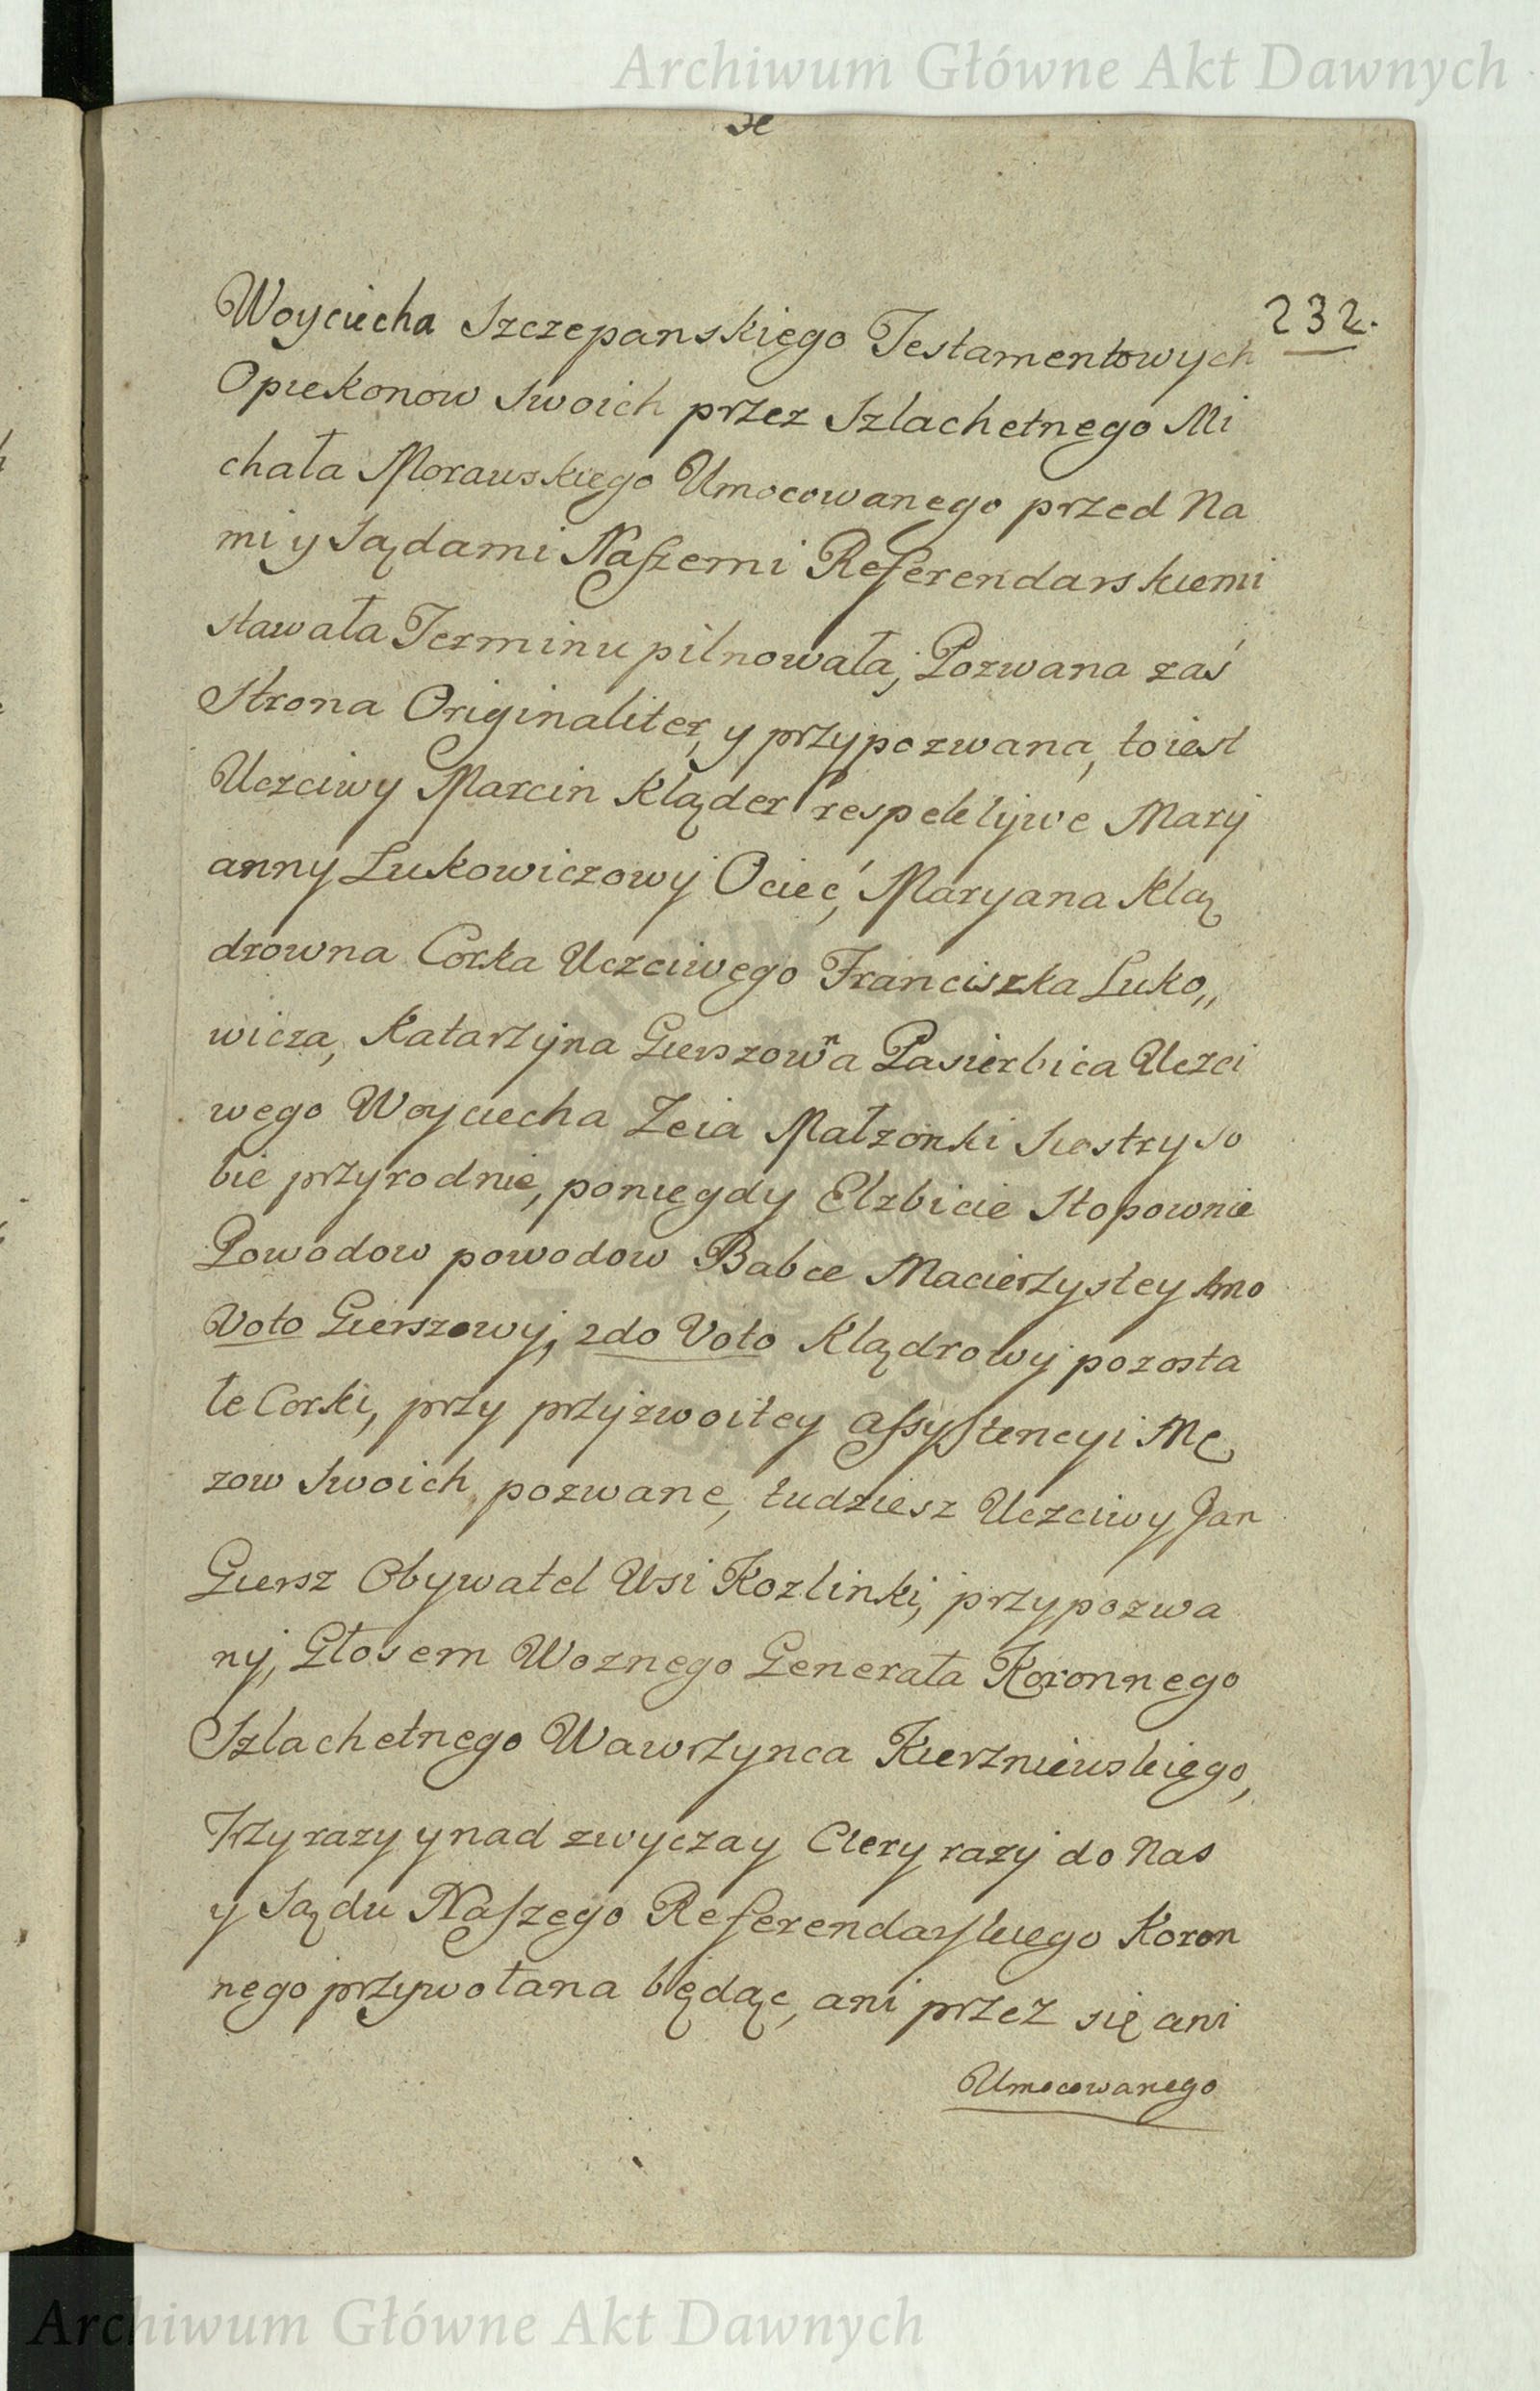 Archiwum Główne Akt Dawnych
232.
Woyciecha Szczepanskięgo Testamentowych
Opiekonow Swoich przez Szlachetnęgo Mi
chała Morawskięgo Umocowanęgo przed Na
mi y Sądami Naszemi Referendarskiemi
stawała Terminu pilnowała, Pozwana zaś
Strona Originaliter, y przypozwana, toiest
Uczciwy Marcin Kląder respektijwe Mary
anny Lukowiczowy Ociec, Maryana Klą
drowna Corka Uczciwęgo Franciszka Luko„
wicza, Katarzyna Gierszowna Pasierbica Uczci
wego Woyciecha Zeia Małzonki Siostry so
bie przyrodnie, poniegdy Elzbicie Stopownie
Powodow powodow Babce Macierzystey 1mo
Voto Gierszowy, 2do Voto Klądrowy pozosta
łe Corki, przy przyzwoitey assystencyi Mę
zow Swoich pozwane, tudziesz Uczciwy Jan
Giersz Obywatel Wsi Kozlinki, przypozwa
ny, Głosem Woznego Generała Koronnego
Szlachetnęgo Wawrzynca Kierzniewskięgo,
Trzy razy y nad zwyczay Cztery razy do Nas
y Sądu Naszego Referendarskiego Koron
nego przywołana będąc, ani przez się ani
Umocowanego
Archiwum Główne Akt Dawnych